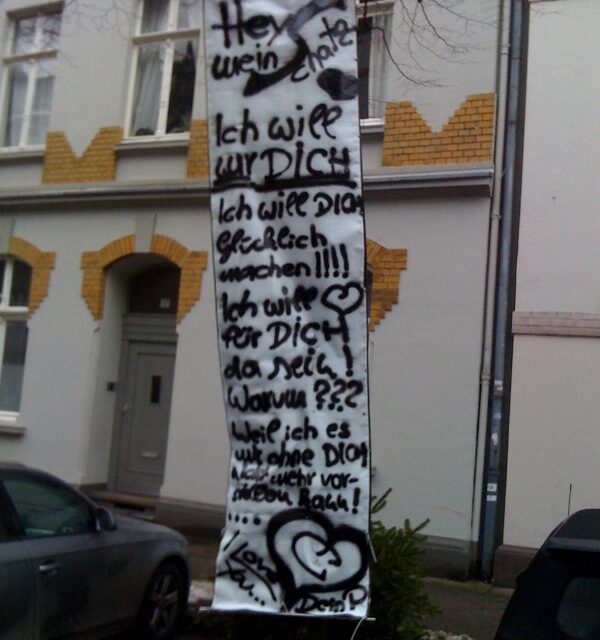 Hey
mein Schatz
Ich will
nur DICH
Ich will DICH
Glücklich
machen!!!!
Ich will
für DICH
da sein!
Warum???
Weil ich es
mir ohne DICH
nicht mehr vor-
stellen kann!
....
I Love
Ya...
Dein P